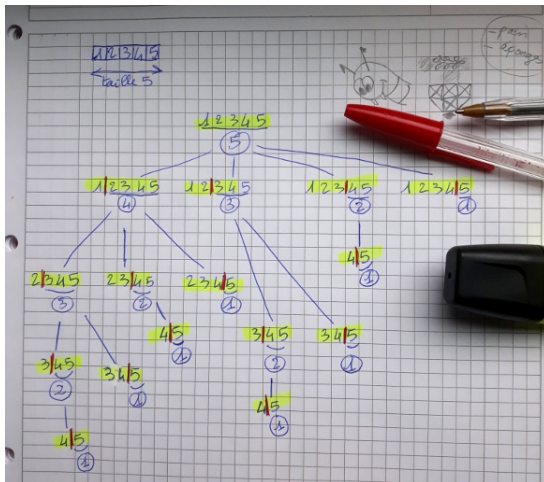 1|2|3|4|5
taille 5
- pain
- éponge
1 2 3 4 5
5
1|2 3 4 5
1 2|3 4 5
1 2 3|4 5
1 2 3 4|5
4
3
2
1
4|5
1
2|3 4 5
2 3|4 5
2 3 4|5
3
2
1
4|5
1
3|4 5
3 4|5
2
1
3|4 5
3 4|5
2
1
4|5
1
4|5
1